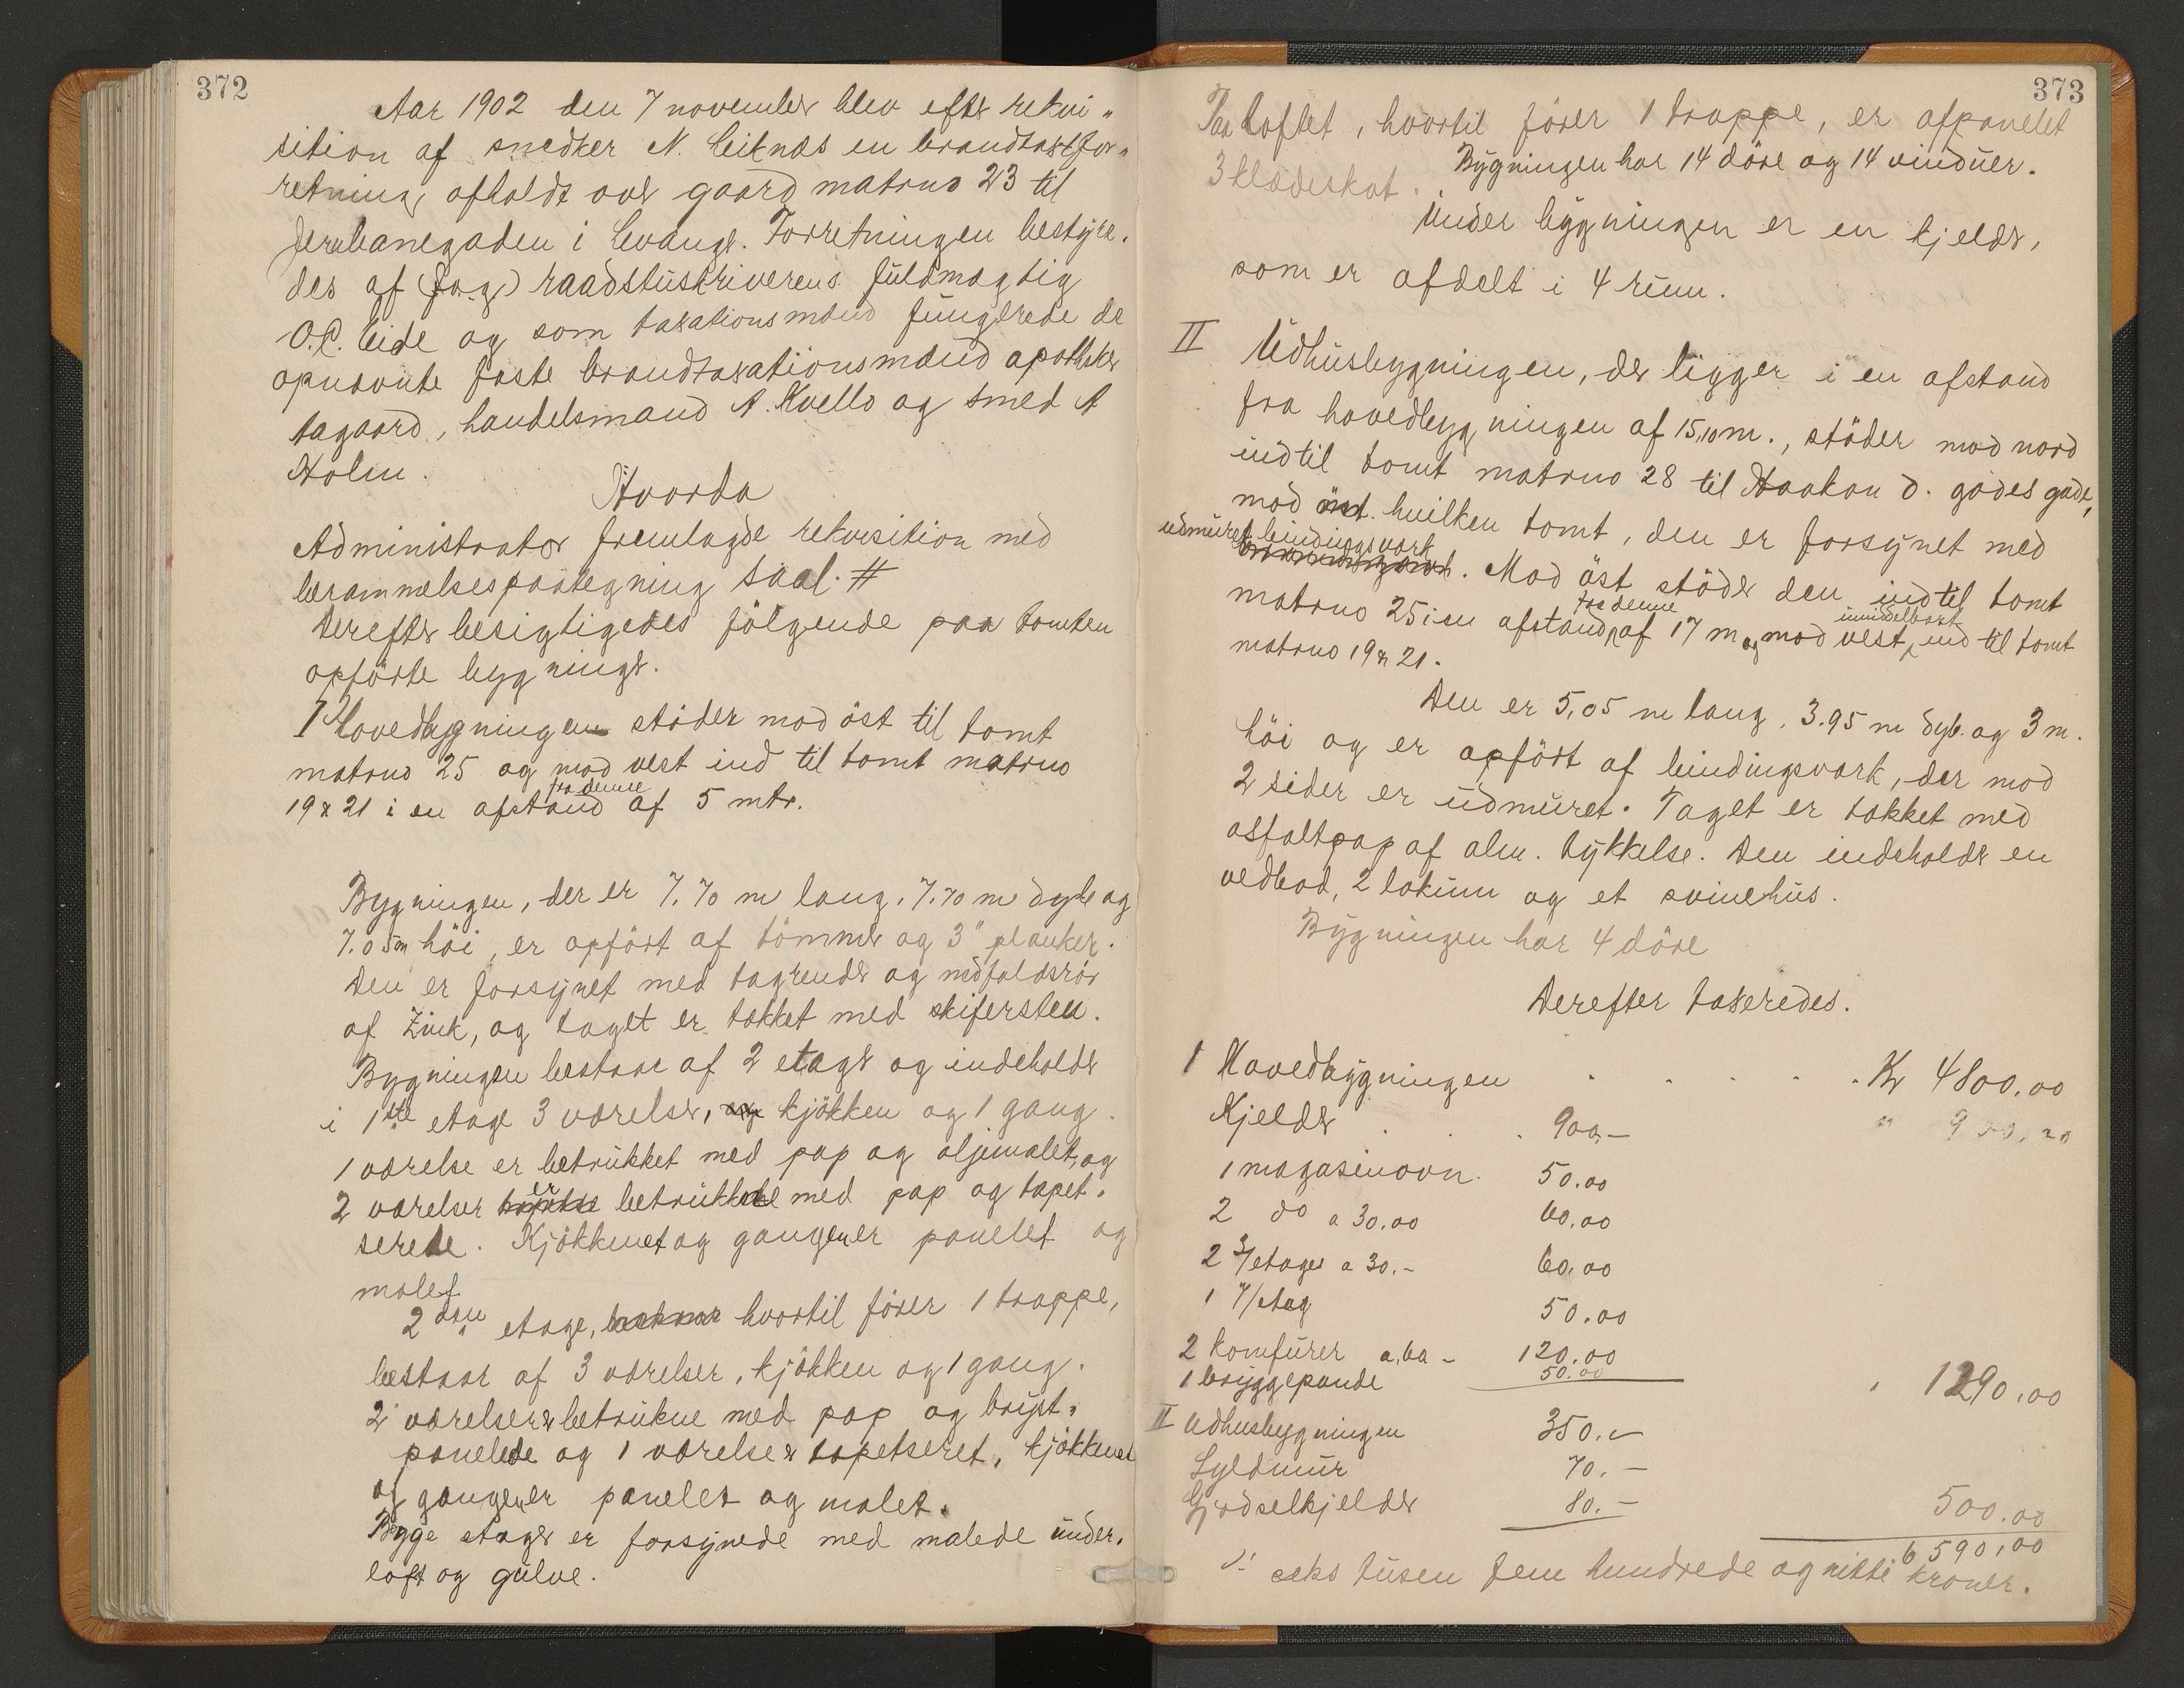 372
Aar 1902 den 7 november blev efter rekvi„
sition af snedker N. Leiknes en brandtaxtfor„
retning afholdt over gaard matrno 23 til
Jernbanegaden i Levanger. Forretningen bestyre„
des af (fog) raadstuskriverens fuldmægtig
O.C. Eide og som taxationsmænd fungerede de
opnævnte faste brandtaxationsmænd apotheker
Tagaard, handelsmand A. Kvello og smed A
Holm.
Hvorda
Administrator fremlagde rekvisition med
berammelsespaategning saal. #
Derefter besigtigedes fölgende paa tomten
opförte bygninger.
I Hovedbygningen stöder mod öst til tomt
matrno 25 og mod vest ind til tomt matrno
fra denne
19 & 21 i en afstand af 5 mtr.
Bygningen, der er 7.70 m lang, 7.70 m dyb og
7.05m höi, er opfört af tömmer og 3" planker.
Den er forsynet med tagrender og nedfaldsrör
af Zink, og taget er tækket med skifersten.
Bygningen bestaar af 2 etager og indeholder
i 1ste etage 3 værelser, og kjökken og 1 gang.
1 værelse er betrukket med pap og oljemalet, og
2 værelser er betrukkede med pap og tapet„
serede. Kjökkenet og gangen er panelet og
malet
2den etage, hvortil förer 1 trappe,
bestaar af 3 værelser, kjökken og 1 gang.
2 værelser er betrukne med pap og bryst„
panelede og 1 værelse er tapetseret, kjökkenet
og gangen er panelet og malet.
Begge etager er forsynede med malede under„
loft og gulve.
373
Paa Loftet, hvortil förer 1 trappe, er afpanelet
3 klædeskot. Bygningen har 14 döre og 14 vinduer.
Under bygningen er en kjelder,
som er afdelt i 4 rum.
II Udhusbygningen, der ligger i en afstand
fra hovedbygningen af 15,10 m., stöder mod nord
indtil tomt matrno 28 til Haakon d. godes gade,
mod öst. hvilken tomt, den er forsynet med
udmuret bindingsværk
. Mod öst stöder den indtil tomt
fra denne umiddelbart
matrno 25 i en afstand af 17 m og mod vest ind til tomt
matrno 19 & 21.
Den er 5,05 m lang, 3.95 m dyb. og 3 m.
höi og er opfört af bindingsværk, der mod
2 sider er udmuret. Taget er tækket med
asfaltpap af alm. tykkelse. Den indeholder en
vedbod, 2 lokum og et svinehus.
Bygningen har 4 döre
Derefter taxeredes.
I Hovedbygningen . . . . . Kr 4800.00
Kjelder . . . 900.— " 900.00
1 magasinovn. 50.00
2 do a 30.00 60.00
2 3/etages a 30.- 60.00
1 7/etag 50.00
2 komfurer a 60 - 120.00
1 bryggepande 50.00 " 1290.00
II Udhusbygningen 350.—
Syldmur 70.—
Gjödselkjelder 80.— 500.00
6 590,00
seks tusen fem hundrede og nitti kroner.